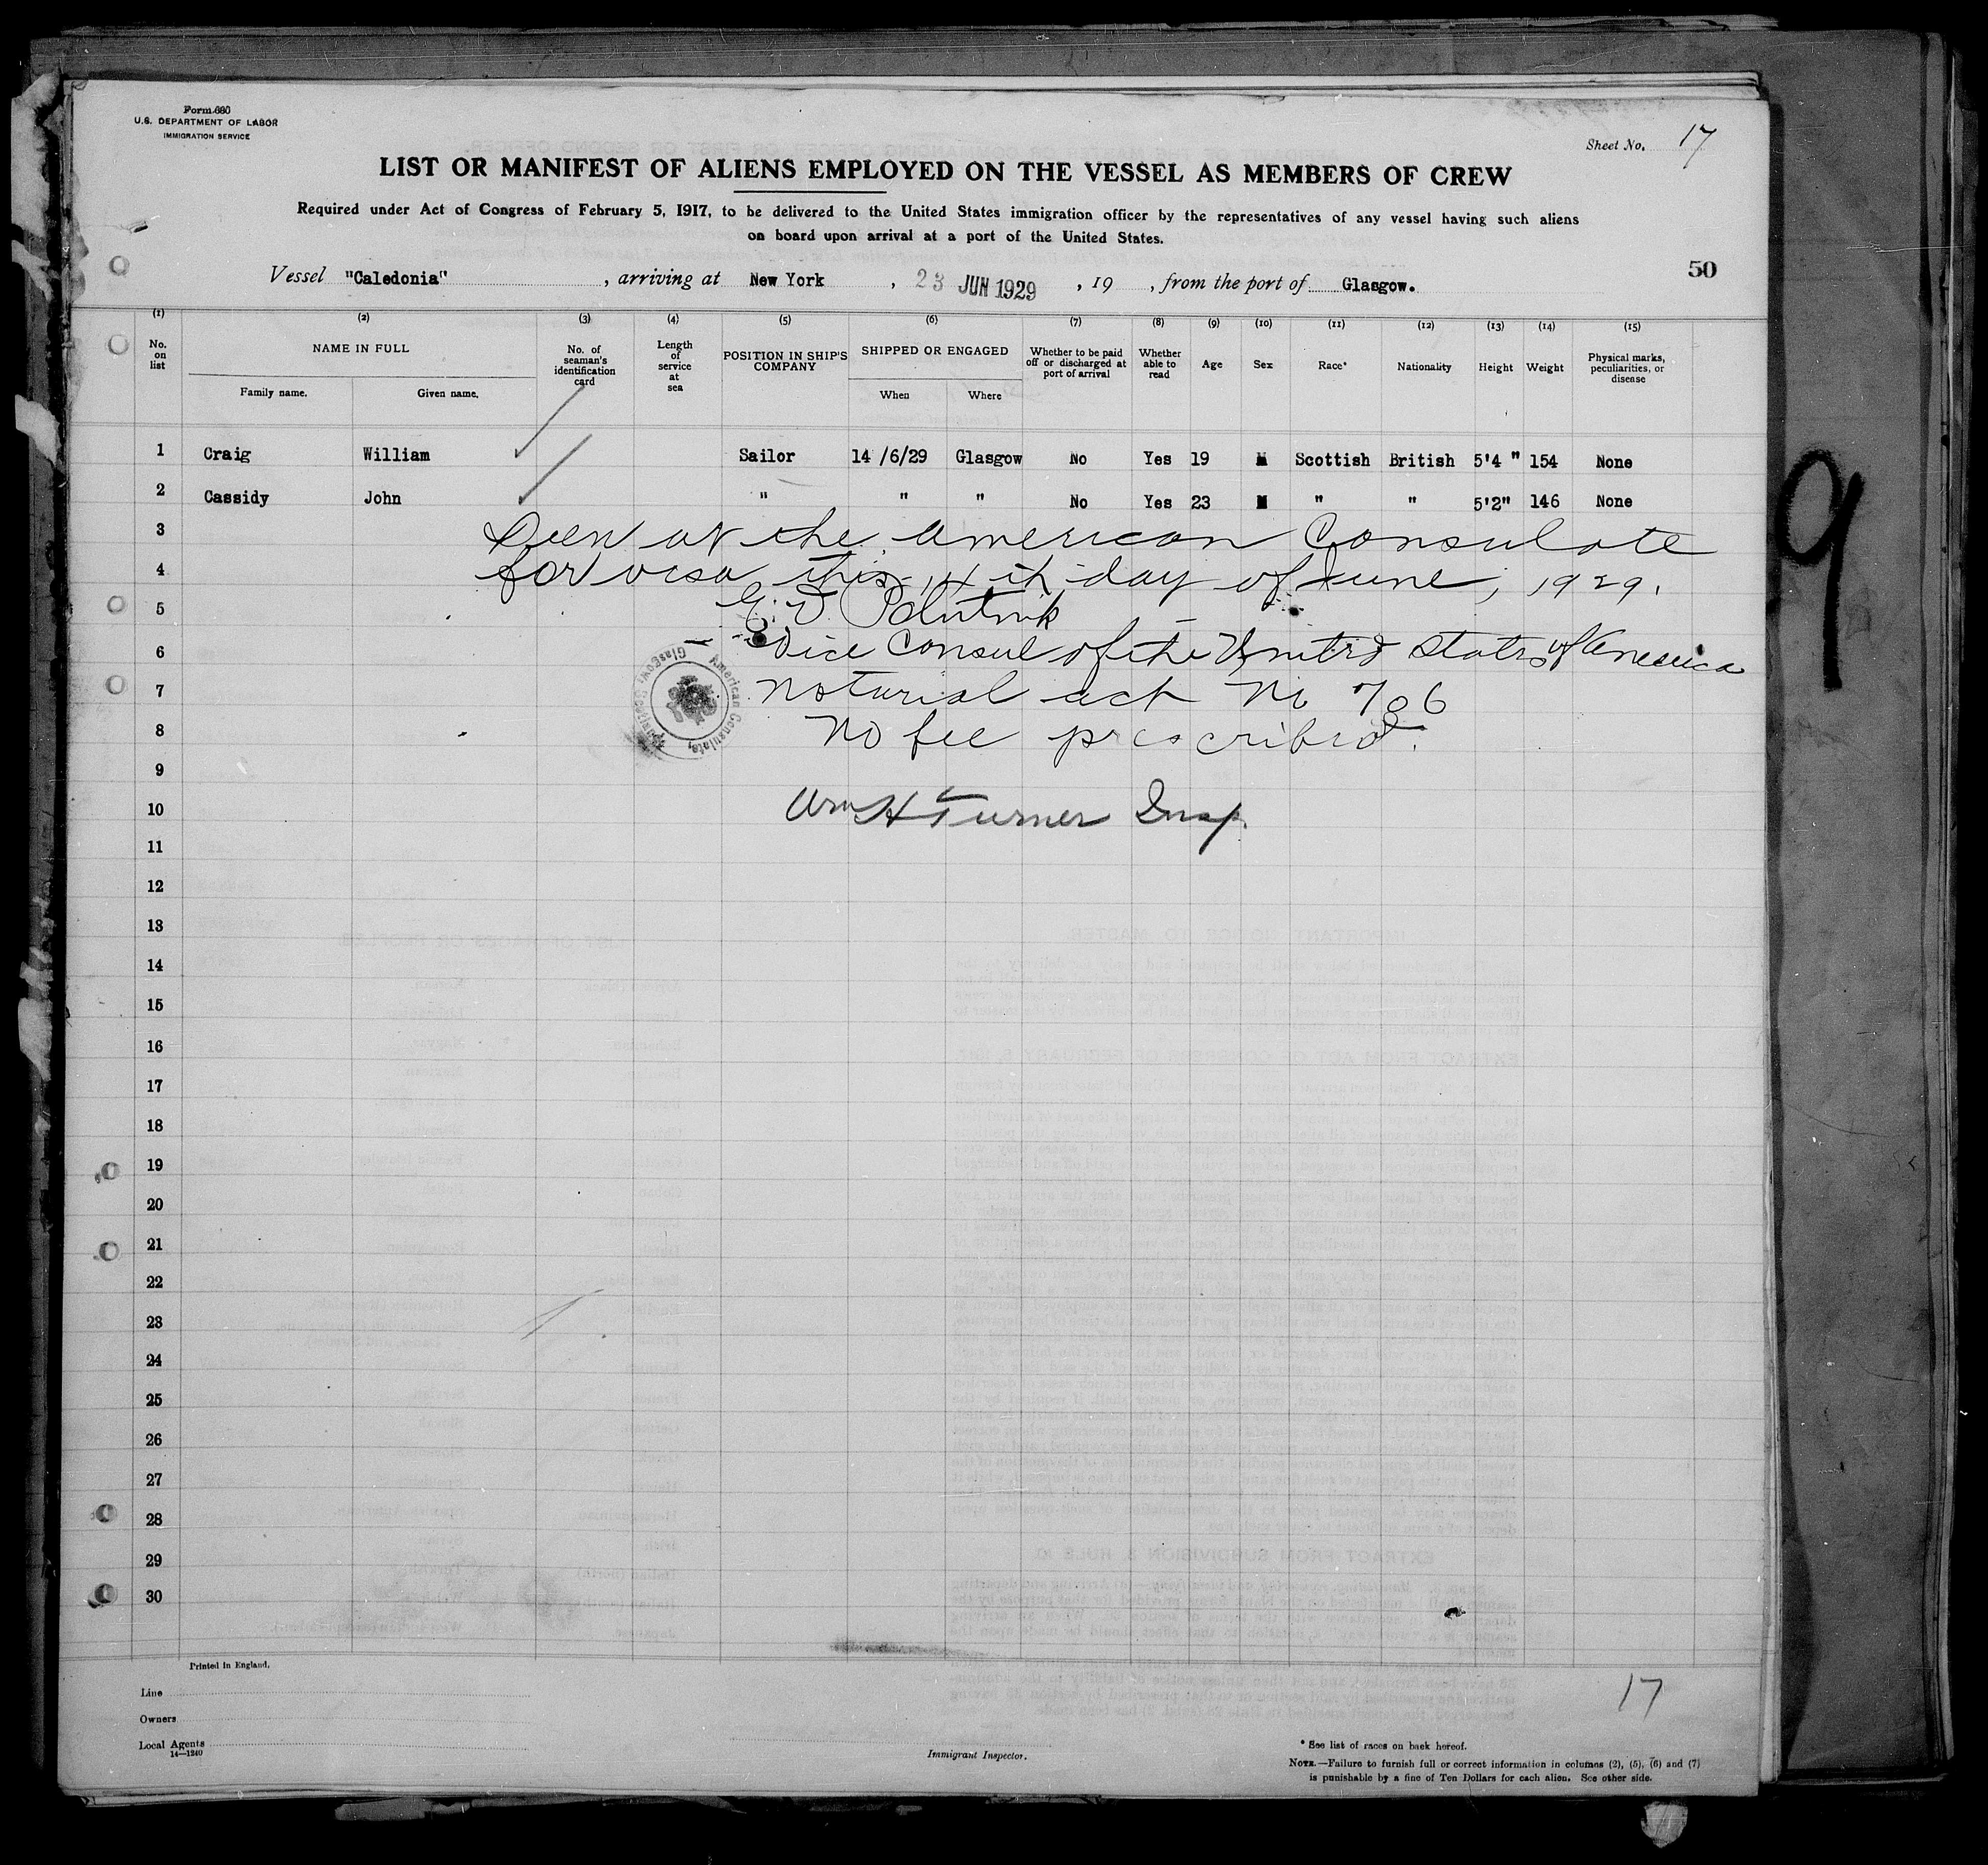 Form 680
U.S. DEPARTMENT OF LABOR
IMMIGRATION SERVICE
Sheet No. 17
LIST OR MANIFEST OF ALIENS EMPLOYED ON THE VESSEL AS MEMBERS OF CREW
Required under Act of Congress of February 5, 1917, to be delivered to the United States immigration officer by the representatives of any vessel having such aliens
on board upon arrival at a port of the United States.
50
Vessel "Caledonia", arriving at New York, 23 JUN 1929, 19 , from the port of Glasgow.
(1) (2) (3) (4) (5) (6) (7) (8) (9) (10) (11) (12) (13) (14) (15)
No. on list
NAME IN FULL
Family name. Given name.
No. of seaman's identification card
Length of service at sea
POSITION IN SHIP'S COMPANY
SHIPPED OR ENGAGED
When Where
Whether to be paid off or discharged at port of arrival
Whether able to read
Age
Sex
Race*
Nationality
Height
Weight
Physical marks, peculiarities, or disease
1 Craig William Sailor 14 /6/29 Glasgow No Yes 19 M Scottish British 5'4 " 154 None
2 Cassidy John " " " No Yes 23 M " " 5'2" 146 None
3 Seen at the American Consulate
4 for visa this 14th day of June, 1929.
5
6 Vice Consul of the United States of America
7 Notarial act No 706
8 No fee prescribed.
American Consulate, Glasgow, Scotland
9
10 Wm H Turner Insp.
11
12
13
14
15
16
17
18
19
20
21
22
23
24
25
26
27
28
29
30
Printed in England.
Line
Owners
Local Agents
14—1240
Immigrant Inspector.
17
* See list of races on back hereof.
NOTE.—Failure to furnish full or correct information in columns (2), (5), (6) and (7)
is punishable by a fine of Ten Dollars for each alien. See other side.
9